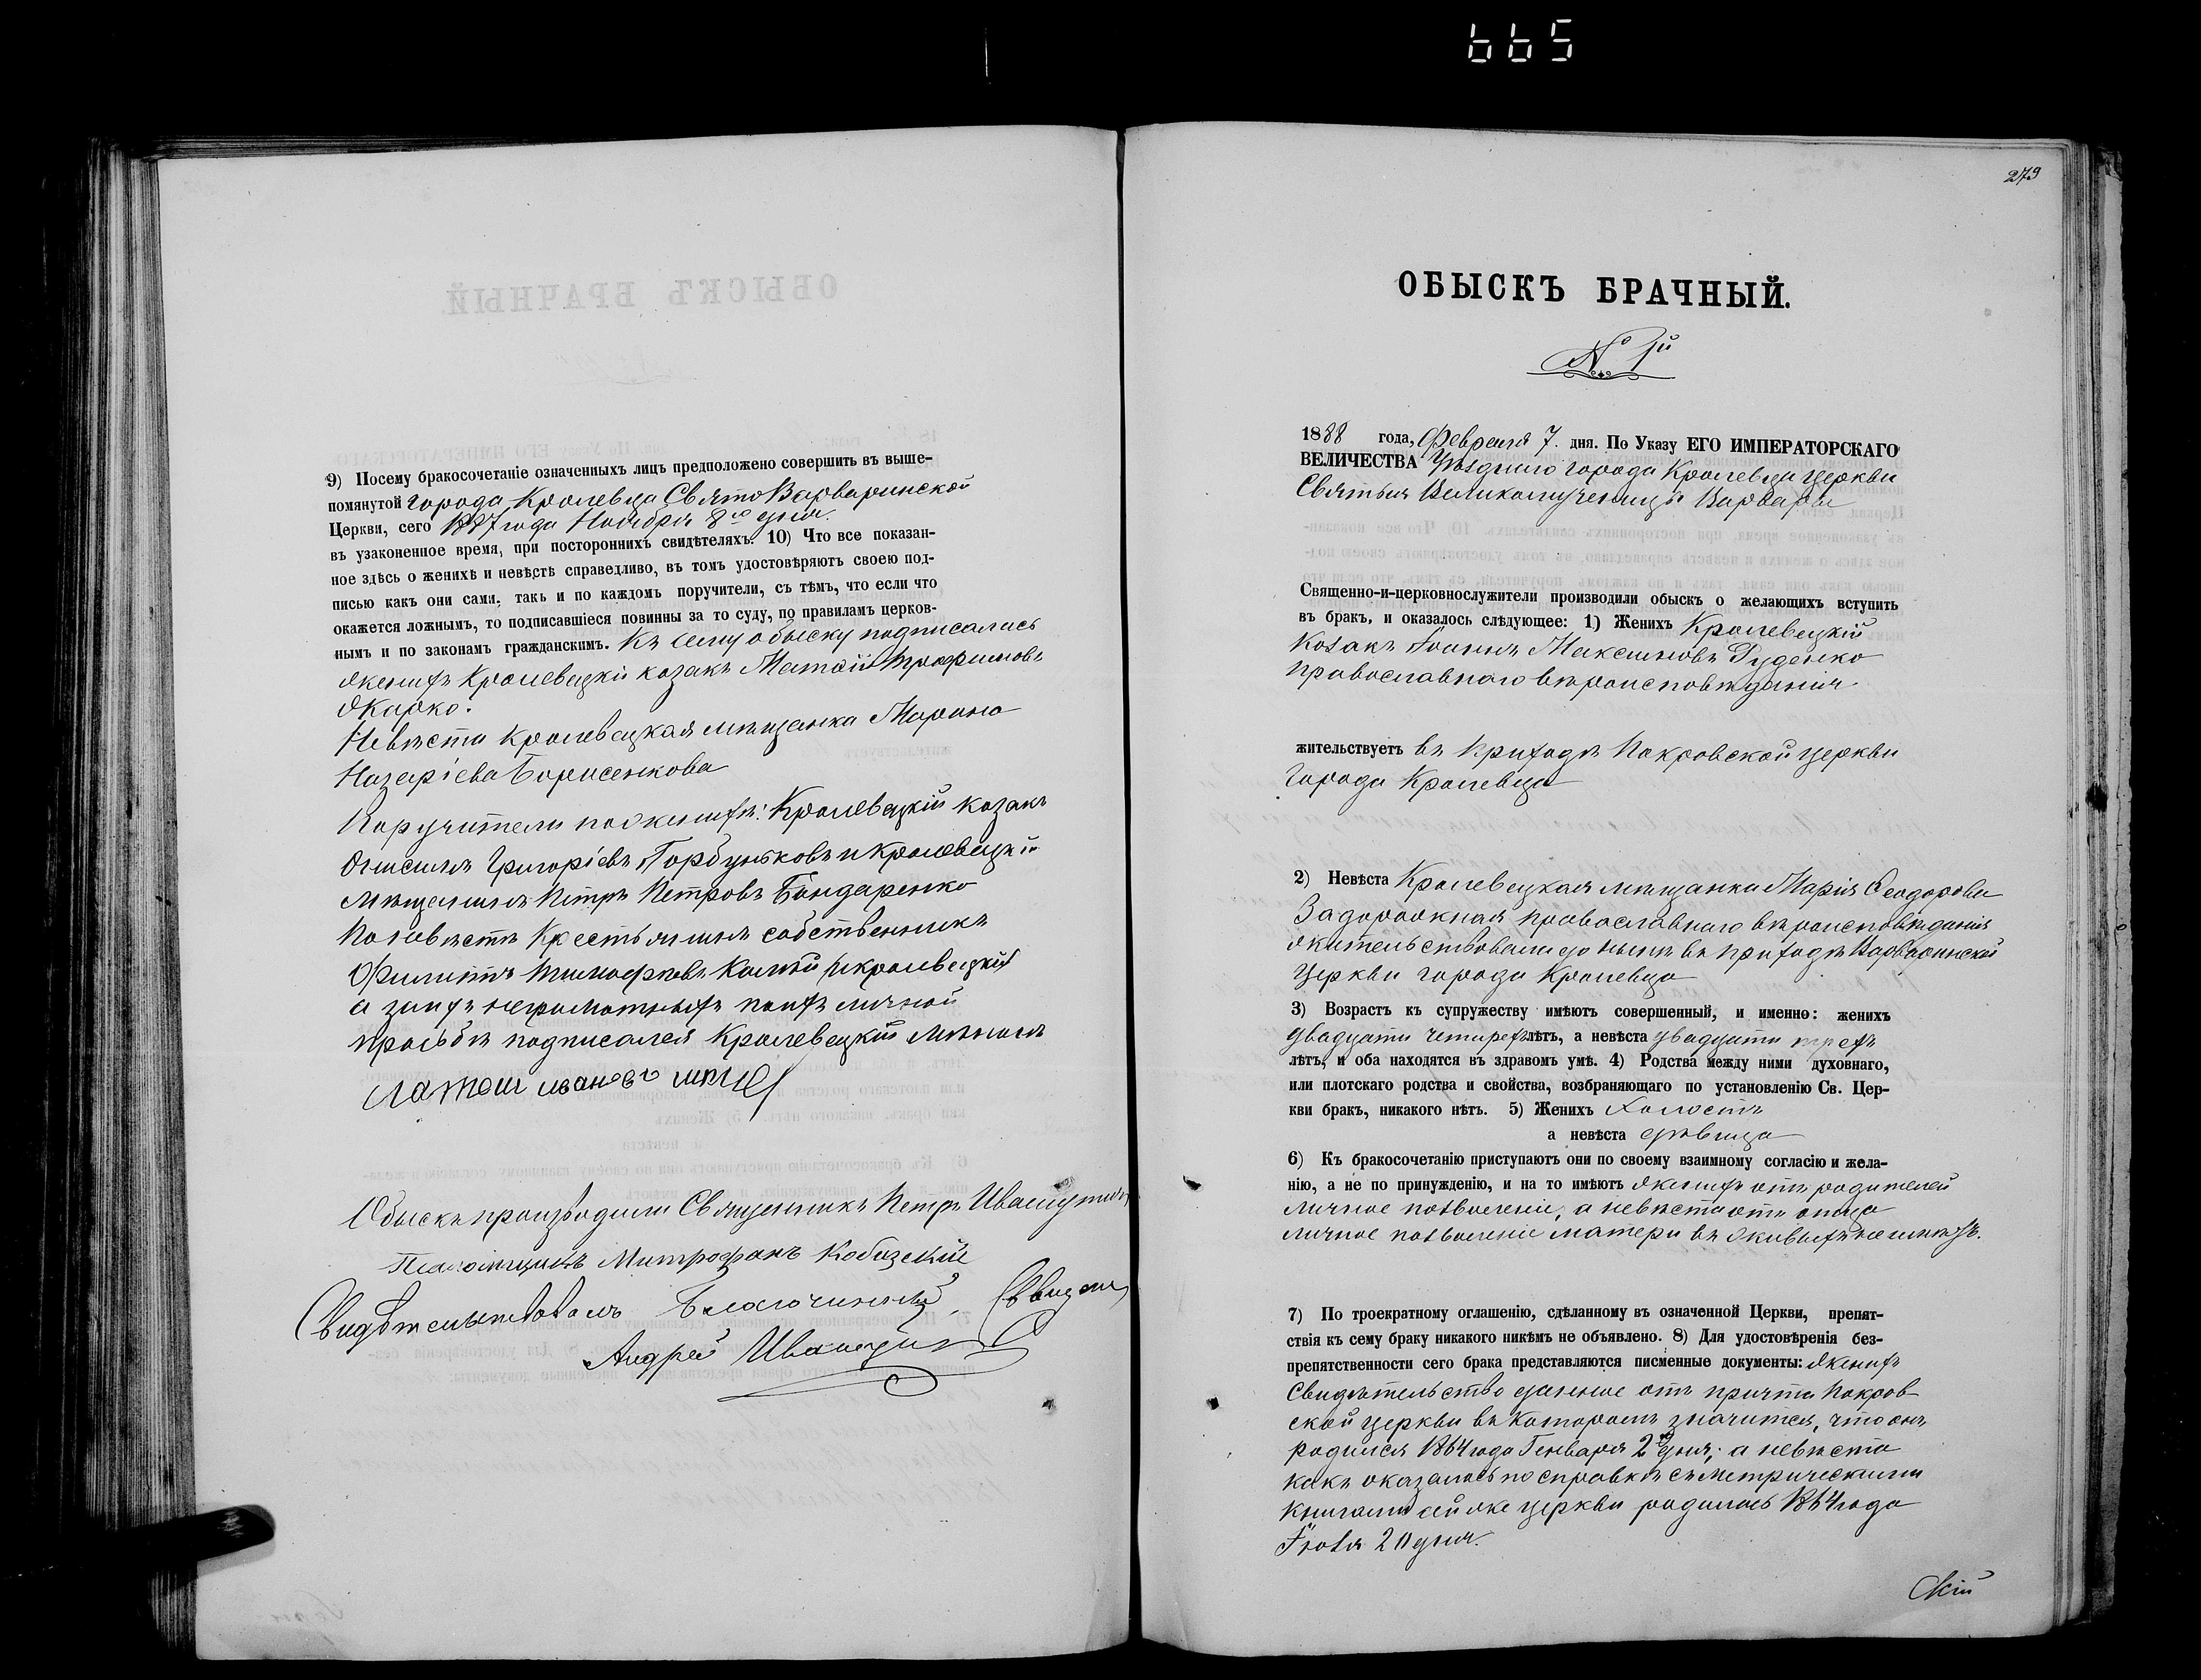 665
9) Посему бракосочетаніе означенныхъ лицъ предположено совершить въ выше-
помянутой города Кролевца СвятоВарваринской
Церкви, сего 1887 года Ноября 8го дня.
въ узаконенное время, при постороннихъ свидѣтеляхъ. 10) Что все показан-
ное здѣсь о женихѣ и невѣстѣ справедливо, въ томъ удостовѣряютъ своею под-
писью какъ они сами, такъ и по каждомъ поручители, съ тѣмъ, что если что
окажется ложнымъ, то подписавшіеся повинны за то суду, по правиламъ церков-
нымъ и по законамъ гражданскимъ. Къ сему обыску подписались
женихъ Кролевецкій козакъ Трофимовъ
Жарко.
Невѣста Кролевецкая мѣщанка Марина
Назаріева Борисенкова
Поручители по женихѣ: Кролевецкій козакъ
Григоріевъ Горбуньковъ и Кролевецкій
мѣщанинъ Петръ Петровъ Бондаренко
По невѣстѣ Крестьянинъ собственникъ
Филиппъ Тимофѣевъ и кролевецкій
а за ихъ неграмотныхъ по ихъ личной
прозьбѣ подписался Кролевецкій
Обыскъ производили Священникъ Петръ
Псаломщикъ Митрофанъ
Свидѣтельствовалъ Благочинный, Священ
Андрей
279
ОБЫСКЪ БРАЧНЫЙ.
№
1888 года, Февраля 7. дня. По Указу ЕГО ИМПЕРАТОРСКАГО
ВЕЛИЧЕСТВА Уѣзднаго города Кролевца церкви
Святыя Великомученицы Варвары
Священно-и-церковнослужители производили обыскъ о желающихъ вступить
въ бракъ, и оказалось слѣдующее: 1) Женихъ Кролевецкій
Козакъ Іоаннъ Максимовъ Руденко
православнаго вѣроисповѣданія.
жительствуетъ въ приходѣ Покровской церкви
города Кролевца
2) Невѣста Кролевецкая мѣщанка Марія Ѳеодорова
Задорожная православнаго вѣроисповѣданія
жительствовала до нынѣ въ приходѣ Варваринской
церкви города Кролевца
3) Возрастъ къ супружеству имѣютъ совершенный, и именно: женихъ
двадцати четирехъ лѣтъ, а невѣста двадцати трехъ
лѣтъ, и оба находятся въ здравомъ умѣ. 4) Родства между ними духовнаго,
или плотскаго родства и свойства, возбраняющаго по установленію Св. Цер-
кви бракъ, никакого нѣтъ. 5) Женихъ холостъ
а невѣста дѣвица
6) Къ бракосочетанію приступаютъ они по своему взаимному согласію и жела-
нію, а не по принужденію, и на то имѣютъ женихъ отъ родителей
личное позволеніе, а невѣста отъ отца
личное позволеніе матери въ живыхъ не имѣетъ.
7) По троекратному оглашенію, сдѣланному въ означенной Церкви, препят-
ствія къ сему браку никакого никѣмъ не объявлено. 8) Для удостовѣренія без-
препятственности сего брака представляются писменные документы: женихъ
Свидѣтельство данное отъ причта Покров-
ской церкви въ которомъ значится, что онъ
родился 1864 года Генваря 2 дня; а невѣста
какъ оказалось по справкѣ съ метрическими
книгами сей же церкви родилась 1864 года
Іюля 20 дня.